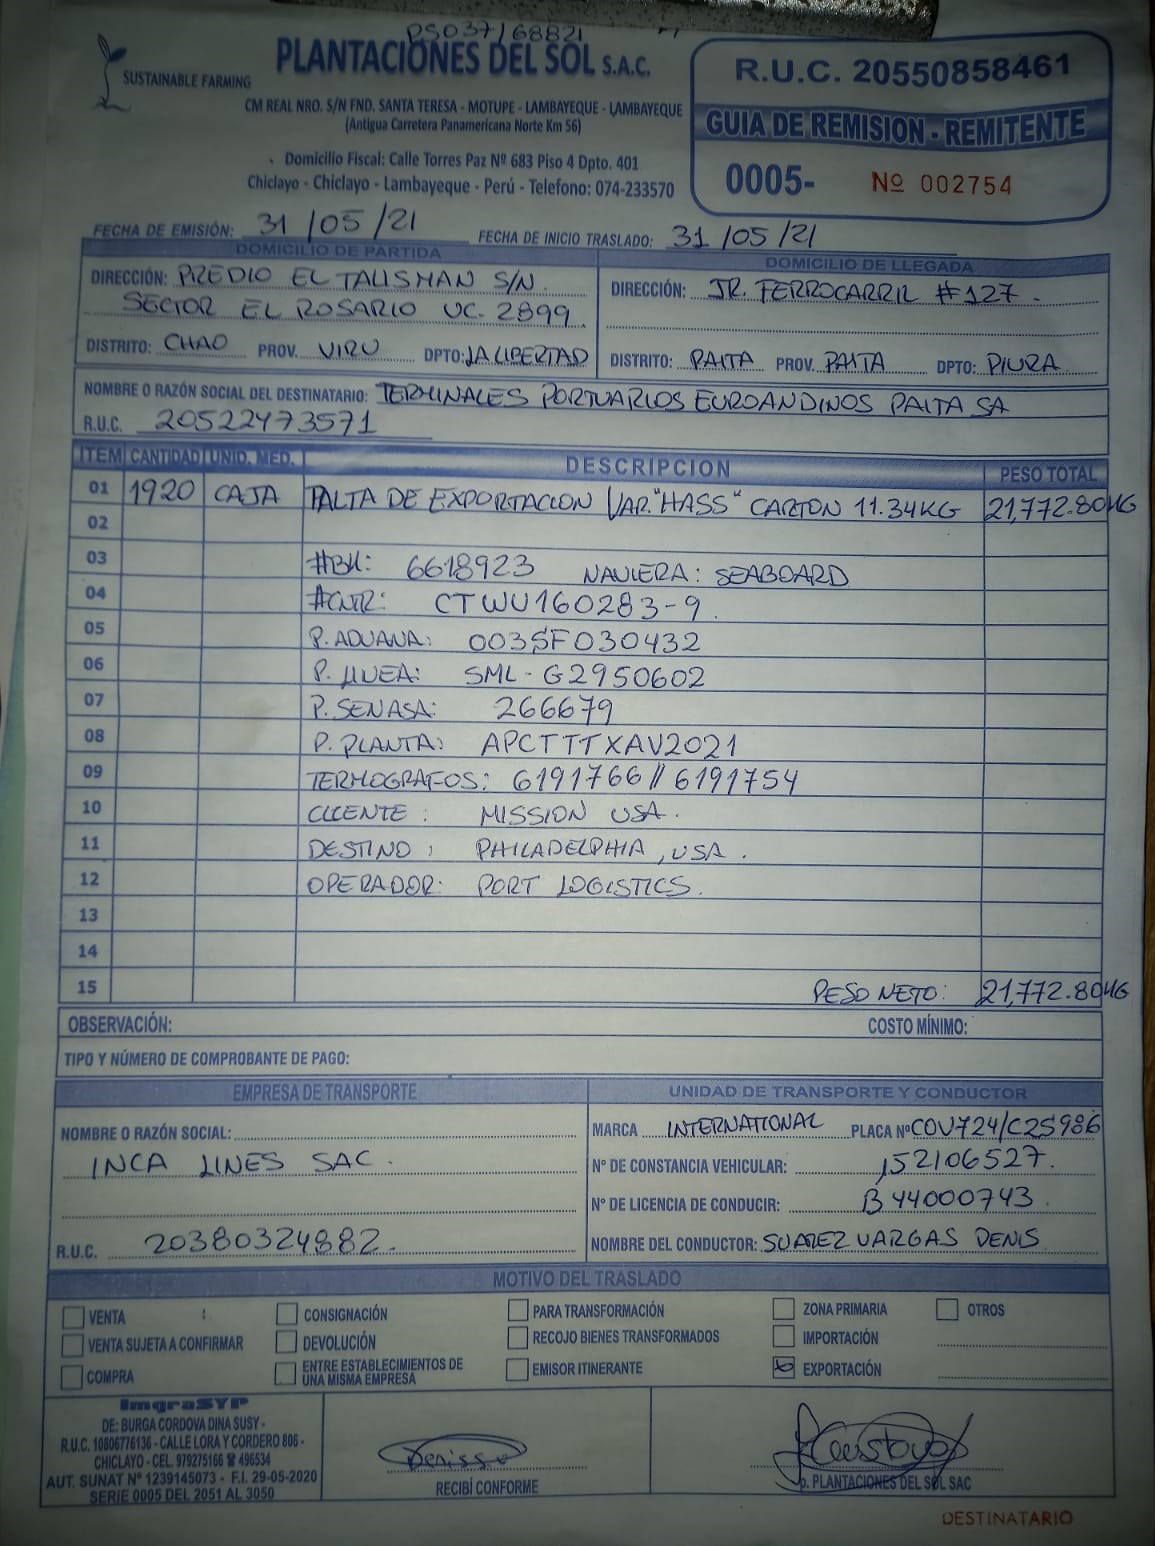 PS037/68821
PLANTACIONES DEL SOL S.A.C.
SUSTAINABLE FARMING
CM REAL NRO. S/N FND. SANTA TERESA - MOTUPE - LAMBAYEQUE - LAMBAYEQUE
(Antigua Carretera Panamericana Norte Km 56)
Domicilio Fiscal: Calle Torres Paz Nº 683 Piso 4 Dpto. 401
Chiclayo - Chiclayo - Lambayeque - Perú - Telefono: 074-233570
R.U.C. 20550858461
GUIA DE REMISION - REMITENTE
0005- Nº 002754
FECHA DE EMISIÓN: 31/05/21 FECHA DE INICIO TRASLADO: 31/05/21
DOMICILIO DE PARTIDA
DIRECCIÓN: PREDIO EL TALISMAN S/N.
SECTOR EL ROSARIO UC. 2899
DISTRITO: CHAO PROV. VIRU DPTO: LA LIBERTAD
DOMICILIO DE LLEGADA
DIRECCIÓN: JR. FERROCARRIL #127.
DISTRITO: PAITA PROV. PAITA DPTO: PIURA
NOMBRE O RAZÓN SOCIAL DEL DESTINATARIO: TERMINALES PORTUARIOS EUROANDINOS PAITA SA
R.U.C. 20522473571
ITEM CANTIDAD UNID. MED. DESCRIPCION PESO TOTAL
01 1920 CAJA PALTA DE EXPORTACION VAR. "HASS" CARTON 11.34KG 21,772.80KG
02
03 #BK: 6618923 NAVIERA: SEABOARD
04 #CNTR: CTWU160283-9.
05 P. ADUANA: 003SF030432
06 P. LINEA: SML-G2950602
07 P. SENASA: 266679
08 P. PLANTA: APCTTTXAV2021
09 TERMOGRAFOS: 6191766//6191754
10 CLIENTE: MISSION USA.
11 DESTINO: PHILADELPHIA, USA.
12 OPERADOR: PORT LOGISTICS.
13
14
15 PESO NETO: 21,772.80KG
OBSERVACIÓN: COSTO MÍNIMO:
TIPO Y NÚMERO DE COMPROBANTE DE PAGO:
EMPRESA DE TRANSPORTE
NOMBRE O RAZÓN SOCIAL:
INCA LINES SAC.
R.U.C. 20380324882.
UNIDAD DE TRANSPORTE Y CONDUCTOR
MARCA INTERNATIONAL PLACA Nº COV724/C2S986
Nº DE CONSTANCIA VEHICULAR: 152106527.
Nº DE LICENCIA DE CONDUCIR: B44000743.
NOMBRE DEL CONDUCTOR: SUAREZ VARGAS DENIS
MOTIVO DEL TRASLADO
VENTA CONSIGNACIÓN PARA TRANSFORMACIÓN ZONA PRIMARIA OTROS
VENTA SUJETA A CONFIRMAR DEVOLUCIÓN RECOJO BIENES TRANSFORMADOS IMPORTACIÓN
COMPRA ENTRE ESTABLECIMIENTOS DE UNA MISMA EMPRESA EMISOR ITINERANTE EXPORTACIÓN
ImgraSYP
DE: BURGA CORDOVA DINA SUSY -
R.U.C. 10806776136 - CALLE LORA Y CORDERO 806 -
CHICLAYO - CEL. 979275166 ☎ 496534
AUT. SUNAT Nº 1239145073 - F.I. 29-05-2020
SERIE 0005 DEL 2051 AL 3050
RECIBÍ CONFORME
p. PLANTACIONES DEL SOL SAC
DESTINATARIO